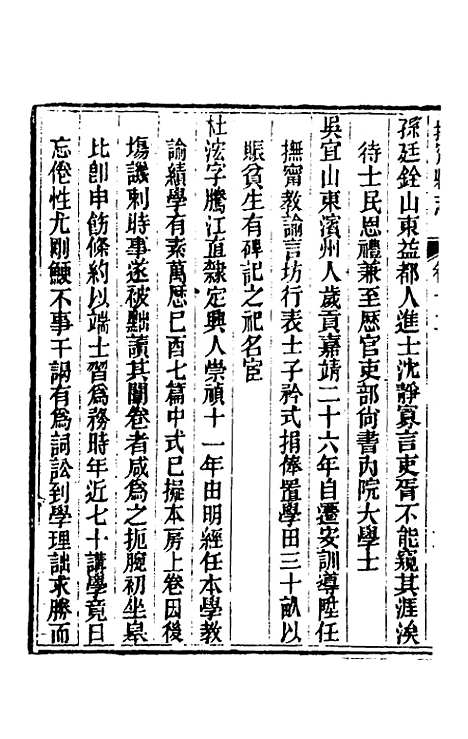 孫廷銓山東益都人進士沈靜寡言吏胥不能窺其涯涘
待士民恩禮兼至歷官吏部尙書內院大學士
吳宜山東濱州人歲貢嘉靖二十六年自遷安訓導陞任
撫甯教諭言坊行表士子矜式捐俸置學田三十畝以
賑貧生有碑記之祀名宦
杜浤字騰江直隸定興人崇禎十一年由明經任本學教
諭績學有素萬歷己酉七篇中式已擬本房上卷因後
塲譏刺時事遂被黜讀其闈卷者咸為之扼腕初坐皐
比卽申飭條約以端士習為務時年近七十講學竟日
忘倦性尤剛鯁不事干謁有為詞訟到學理詘求勝而